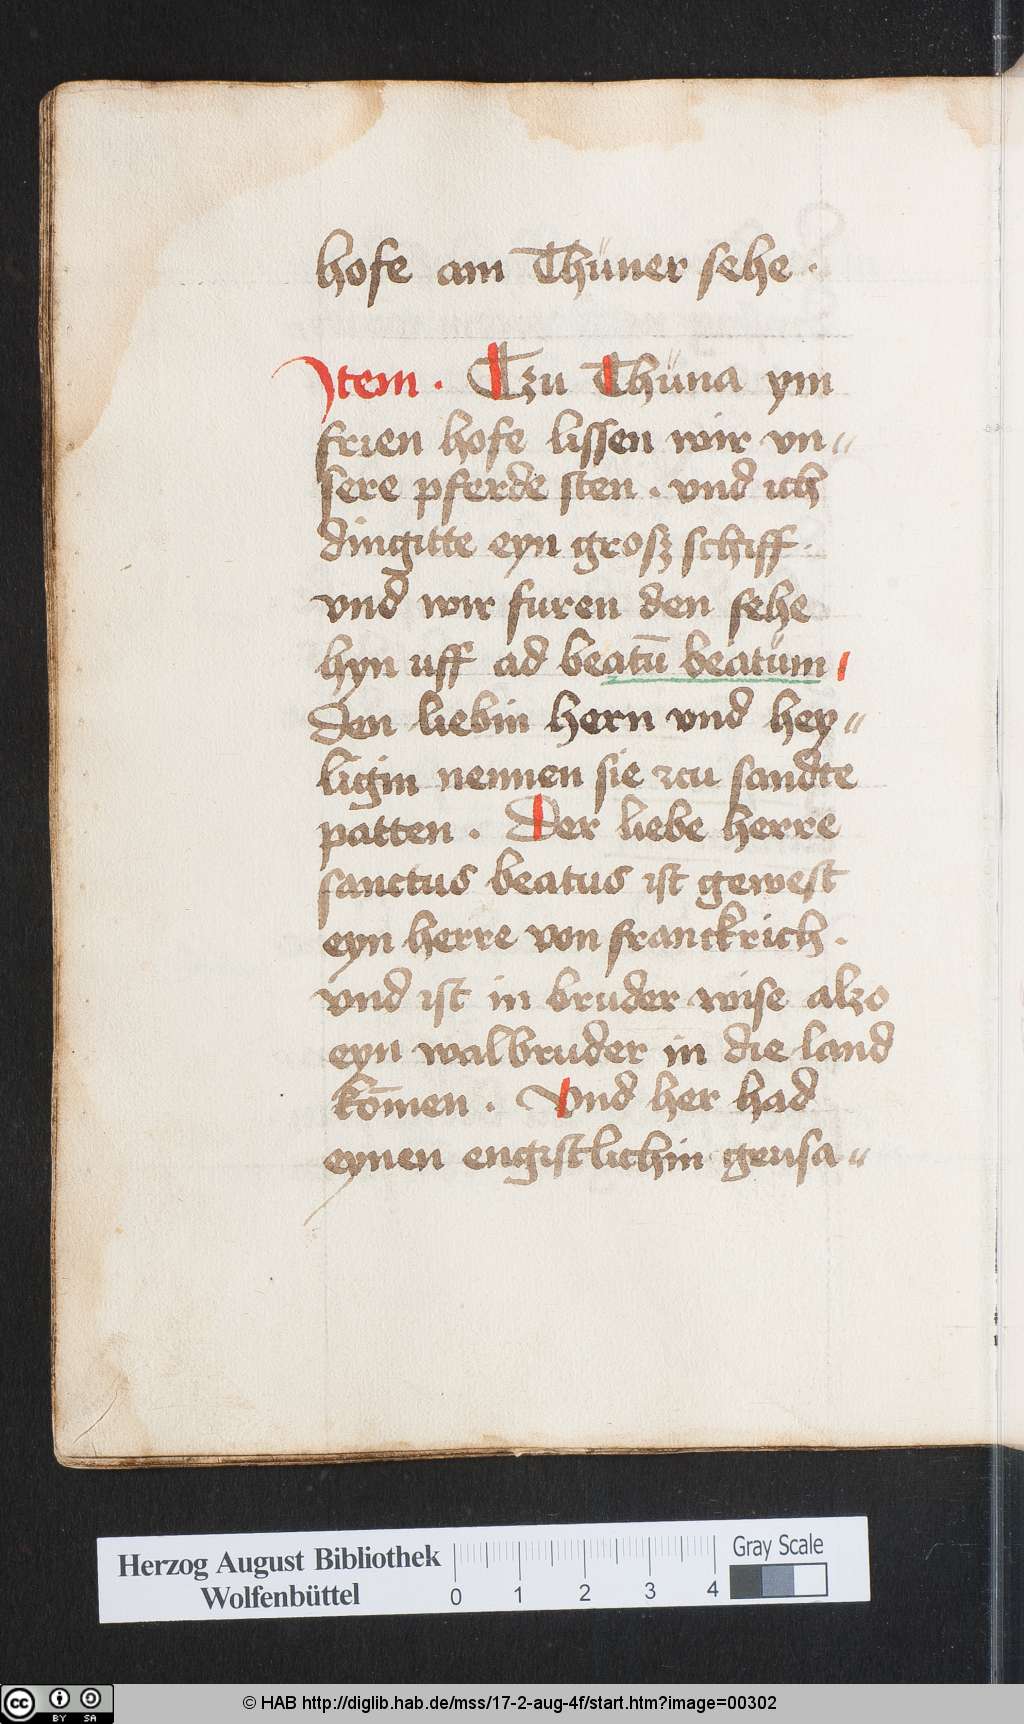 hofe am Thüner sehe ·
Item · Tzu Thüna ym
frien hofe lissen wir vn〃
sere pferde sten · vnd ich
dingitte eyn grosz schiff ·
vnd wir furen den sehe
hyn uff ad beatū beatüm
den liebin hern vnd hey〃
ligin nennen sie zcu sandte
patten · Der liebe herre
sanctus beatus ist gewest
eyn herre von franckrich ·
vnd ist in bruder wise alzo
eyn walbruder in die land
kōmen · Vnd her had
eynen engistlichin grusa〃
Herzog August Bibliothek
Wolfenbüttel
0 1 2 3 4
Gray Scale
cc BY SA
© HAB http://diglib.hab.de/mss/17-2-aug-4f/start.htm?image=00302